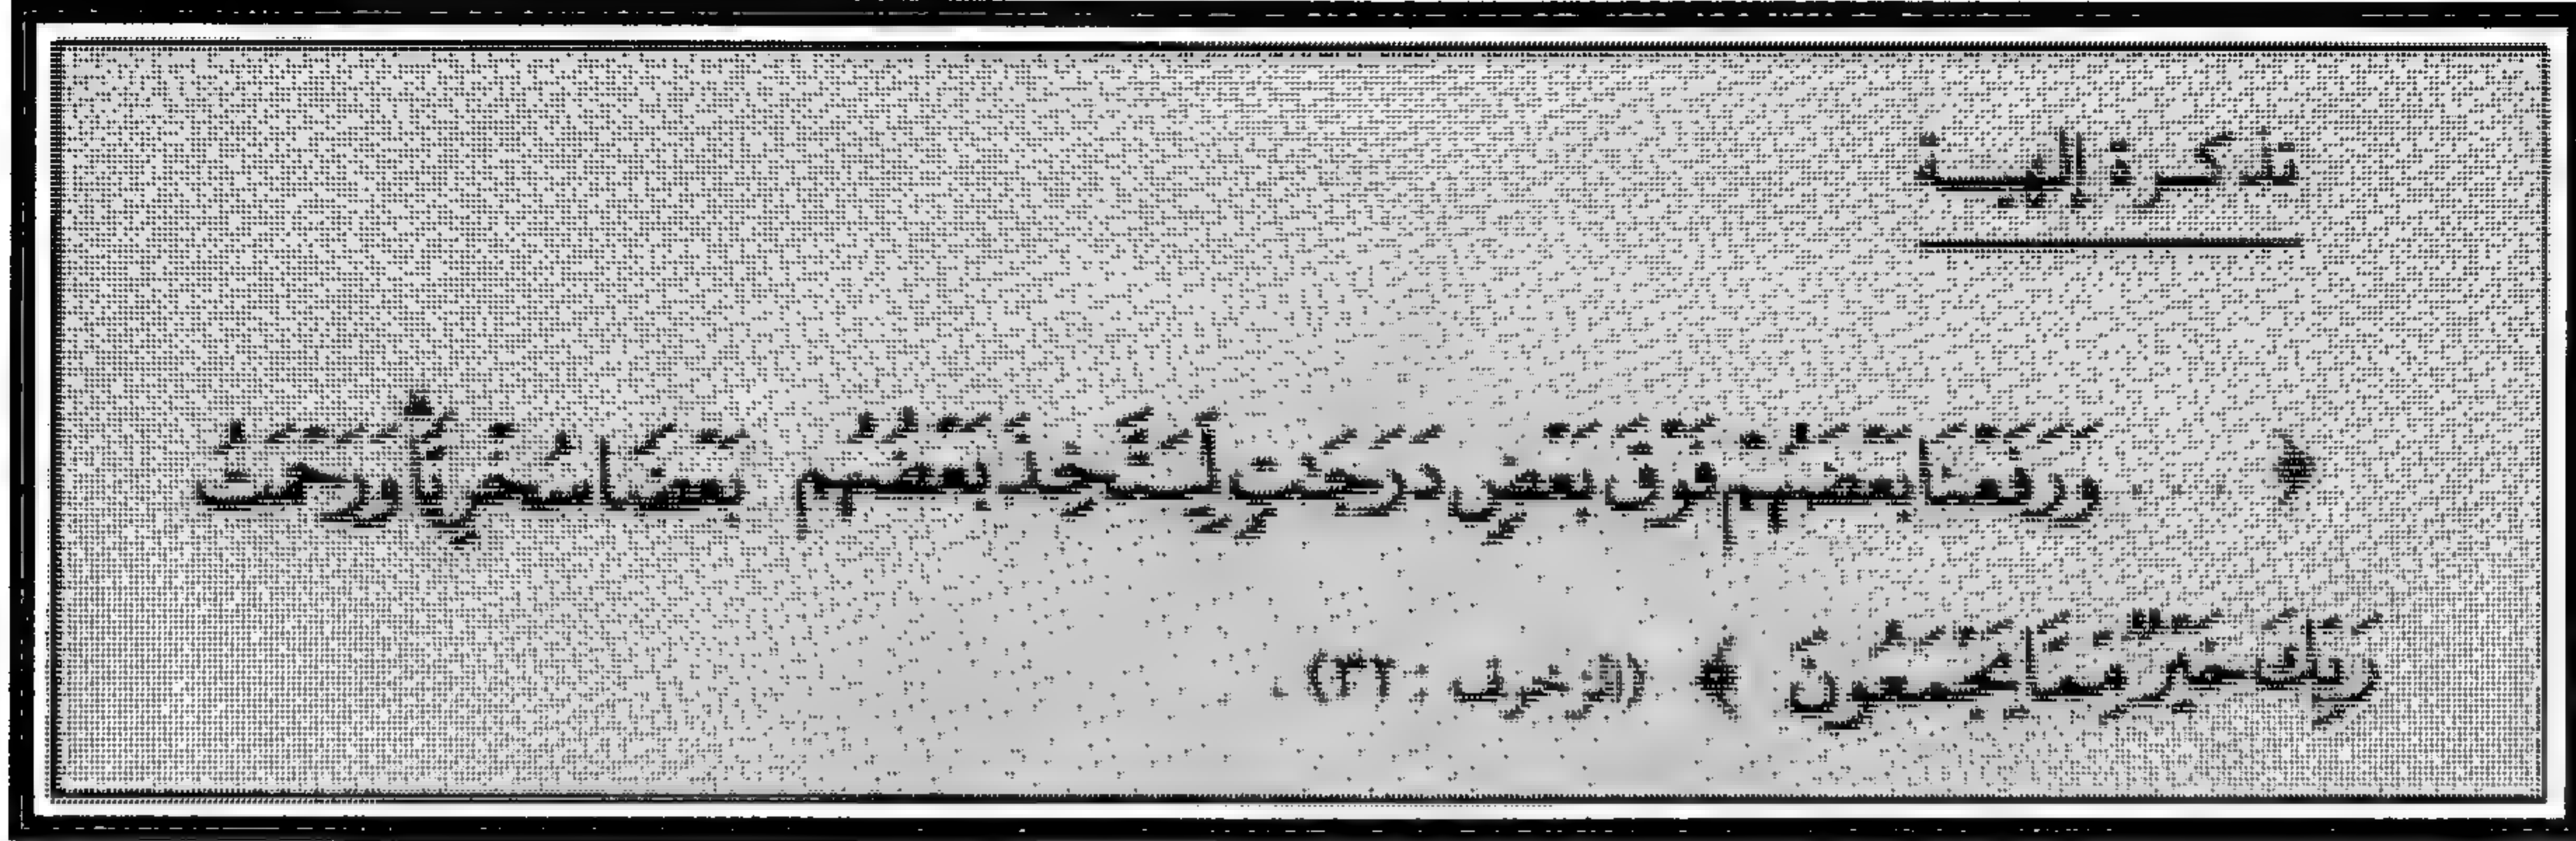 تذكرة إلهية
﴿ وَرَفَعْنَا بَعْضَهُمْ فَوْقَ بَعْضٍ دَرَجَٰتٍ لِّيَتَّخِذَ بَعْضُهُم بَعْضًا سُخْرِيًّا وَرَحْمَتُ
رَبِّكَ خَيْرٌ مِّمَّا يَجْمَعُونَ ﴾ (الزخرف : ٣٢) .